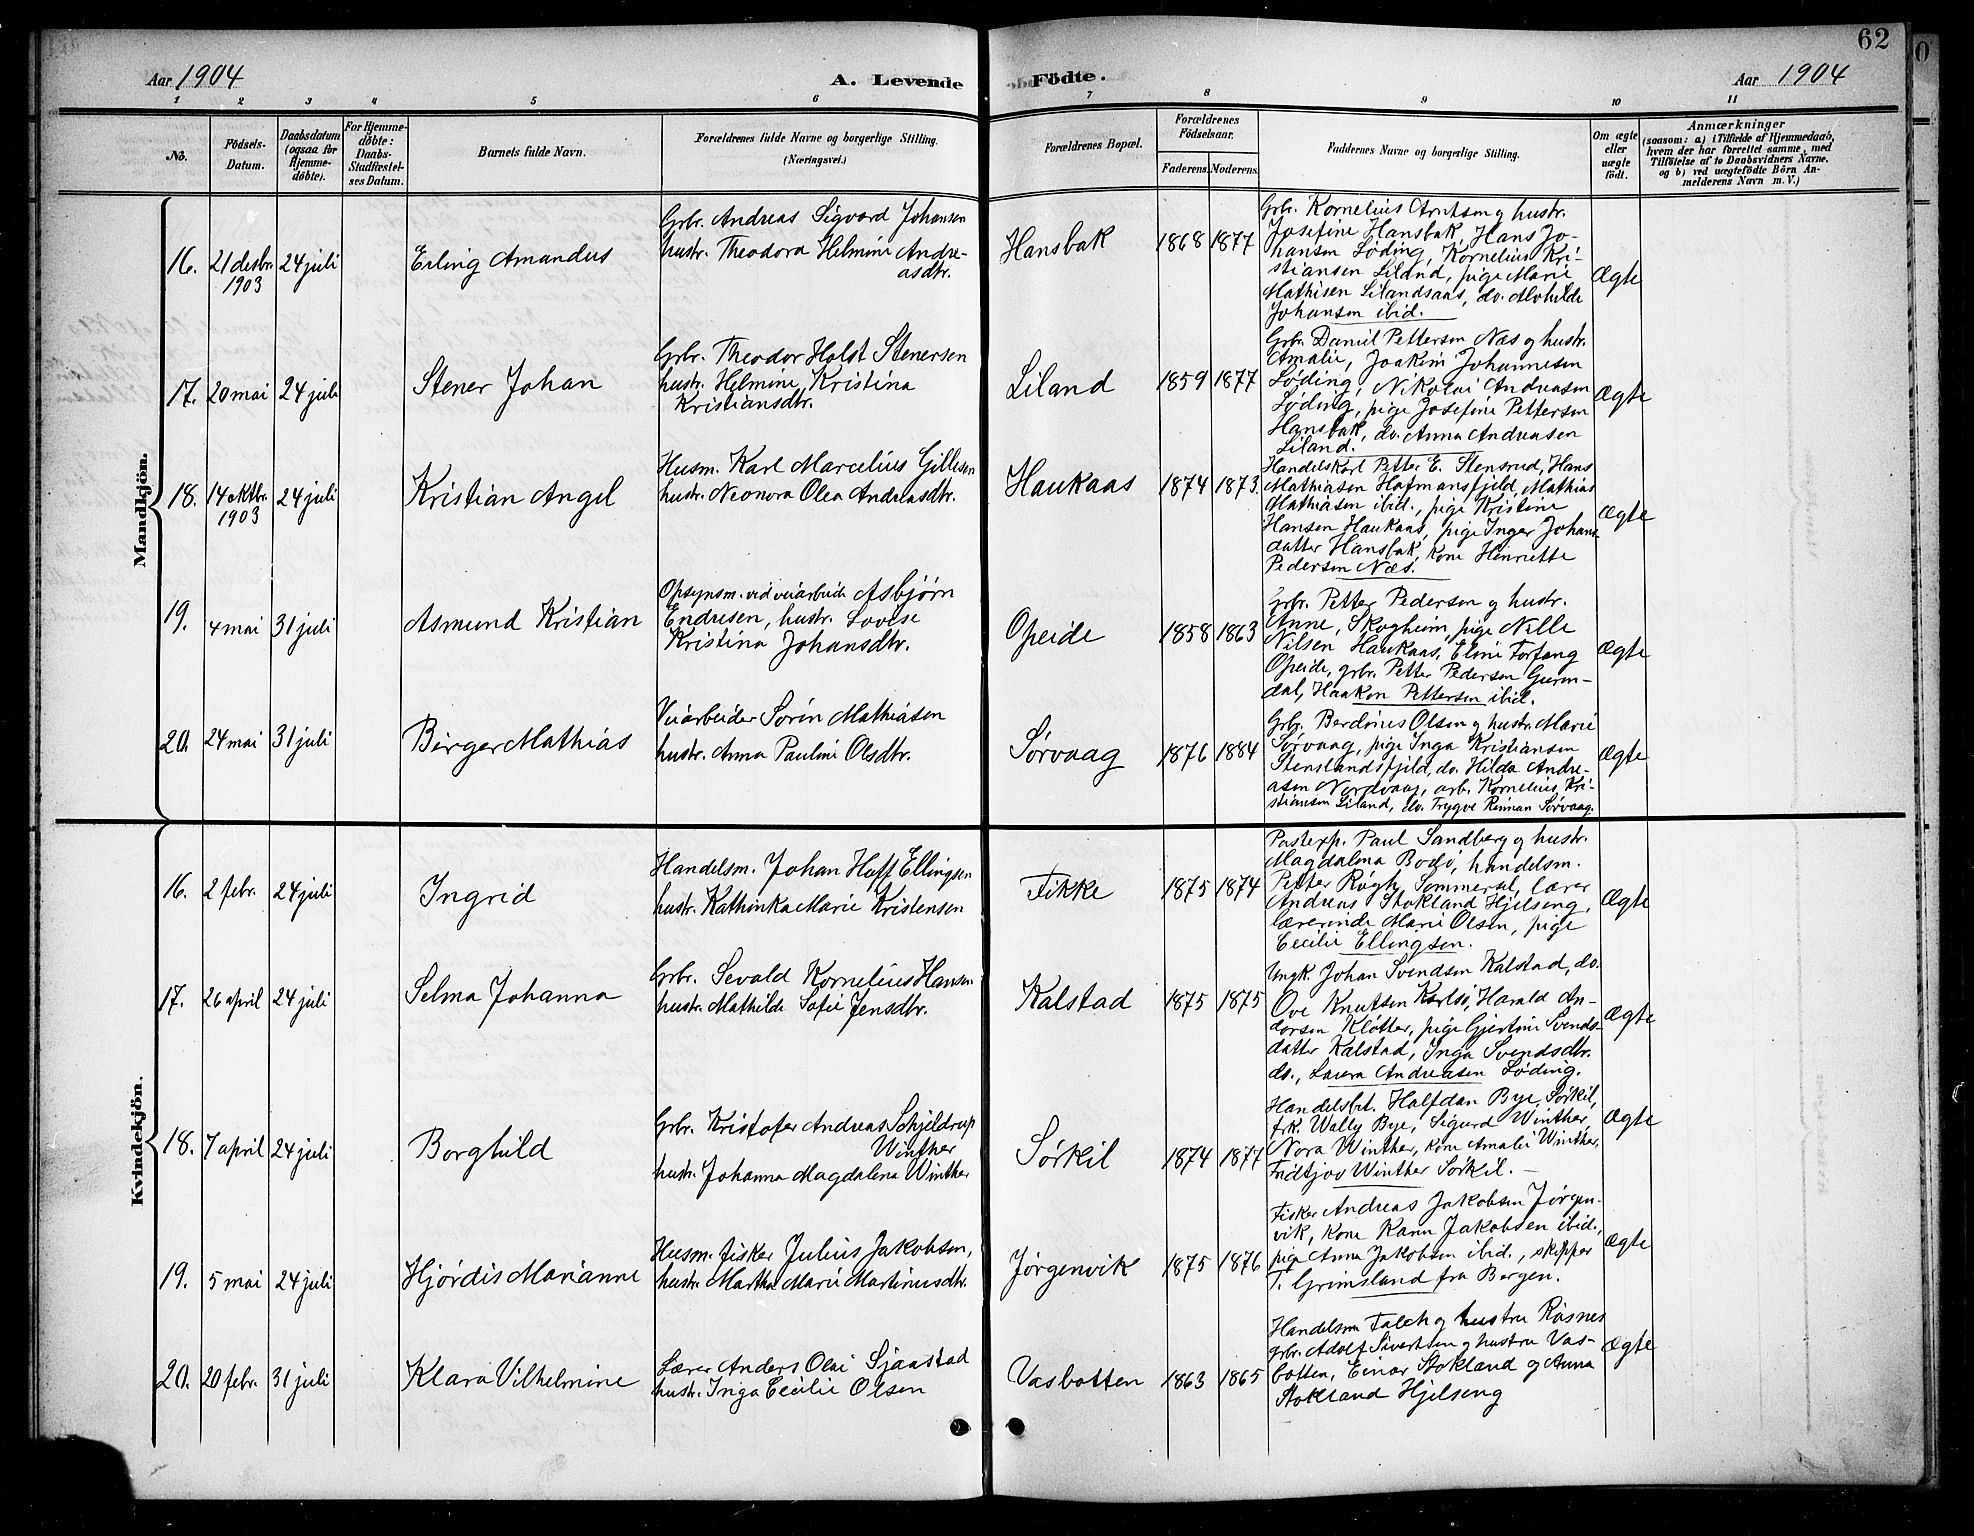 62
Aar 1904
A. Levende Födte.
Aar 1904
1 2 3 4 5 6 7 8 9 10 11
No.
Födsels-
Datum.
Daabsdatum
(ogsaa for
Hjemme-
döbte).
For Hjemme-
döbte:
Daabs-
Stadfæstel-
ses Datum.
Barnets fulde Navn.
Forældrenes fulde Navne og borgerlige Stilling.
(Næringsvei.)
Forældrenes Bopæl.
Forældrenes
Födselsaar.
Faderens. Moderens.
Faddernes Navne og borgerlige Stilling.
Om ægte
eller
uægte
födt.
Anmærkninger
(saasom: a) i Tilfælde af Hjemmedaab,
hvem der har forrettet samme, med
Tilföielse af to Daabsvidners Navne,
og b) ved uægtefödte Börn An-
melderens Navn m. V.)
Mandkjön.
16. 21 desbr. 1903 24 juli
Erling Amandus
Grbr. Andreas Sigvard Johansen
hustr. Theodora Helmine Andre-
asdtr.
Hansbak 1868 1877
Grbr. Kornelius Arntsen og hustr.
Josefine Hansbak, Hans Jo-
hansen Løding, Kornelius Kri-
stiansen Liland, pige Marie
Mathisen Lilandsaas, do. Alvhilde
Johansen ibid.
Ægte
17. 20 mai 24 juli
Stener Johan
Grbr. Theodor Holst Stenersen
hustr. Helmine Kristina
Kristiansdtr.
Liland 1859 1877
Grbr. Daniel Pettersen Næs og hustr.
Amalie, Joakim Johannesen
Løding, Nikolai Andreasen
Løding, pige Josefine Pettersen
Hansbak, do. Anna Andreasen
Liland.
Ægte
18. 14 oktbr. 1903 24 juli
Kristian Angel
Husm. Karl Marcelius Gillesen
hustr. Neonora Olea Andreasdtr.
Haukaas 1874 1873.
Handelskarl Petter E. Stensrud, Hans
Mathiasen Hofmansfjeld, Mathias
Mathiasen ibid., pige Kristine
Hansen Haukaas, pige Inger Johans-
datter Hansbak, kone Henriette
Pedersen Næs.
Ægte
19. 4 mai 31 juli
Asmund Kristian
Opsynsm. ved veiarbeide Asbjørn
Endresen, hustr. Lovise
Kristina Johansdtr.
Opeide 1858 1863
Grbr. Petter Pedersen og hustr.
Anne, Skogheim, pige Nelle
Nilsen Haukaas, Eline Forfang
Opeide, grbr. Petter Pedersen
dal, Haakon Pettersen ibid.
Ægte
20. 24 mai 31 juli
Birger Mathias
Veiarbeider Sørin Mathiasen
hustr. Anna Pauline Olsdtr.
Sørvaag 1876 1884
Grbr. Berdines Olsen og hustr. Marie
Sørvaag, pige Inga Kristiansen
Stenslandsfjeld, do. Hilda Andre-
asen Nordvaag, arb. Kornelius Kri-
stiansen Liland, do. Trygve Reinan Sørvaag.
Ægte
Kvindekjön.
16. 2 febr. 24 juli
Ingrid
Handelsm. Johan Hoff Ellingsen
hustr. Kathinka Marie Kristensen
Fikke 1875 1874
Postexp. Paul Sandberg og hustr.
Magdalena Bodø, handelsm.
Petter Røgh, Sommersel, lærer
Andreas Stokland Hjelseng,
lærerinde Marie Olsen, pige
Cecilie Ellingsen.
Ægte
17. 26 april 24 juli
Selma Johanna
Grbr. Sevald Kornelius Hansen
hustr. Mathilde Sofie Jensdtr.
Kalstad 1875 1875
Ungk. Johan Svendsen Kalstad, do.
Ove Knutsen Karlsø, Harald An-
dorsen Kløtter, pige Gjertine Svends-
datter Kalstad, Inga Svendsdtr.
do., Laura Andreasen Løding.
Ægte
18. 7 april 24 juli
Borghild
Grbr. Kristofer Andreas Schjeldrup
Winther
hustr. Johanna Magdalena Winther
Sørkil 1874 1877
Handelsbet. Halfdan Bye, Sørkil,
frk. Wally Bye, Sigurd Winther,
Nora Winther, kone Amalie Winther,
Fridtjov Winther Sørkil. —
Ægte
19. 5 mai 24 juli
Hjørdis Marianne
Husm. fisker Julius Jakobsen,
hustr. Martha Marie Martinusdtr.
Jørgenvik 1875 1876
Fisker Andreas Jakobsen Jørgen-
vik, kone Karen Jakobsen ibid.,
pige Anna Jakobsen ibid., skipper
T. Grimsland fra Bergen.
Ægte
20. 20 febr. 31 juli
Klara Vilhelmine
Lærer Anders Olai Sjaastad
hustr. Inga Cecilie Olsen
Vasbotten 1863 1865
Handelsm Falch og hustru Røsnes
grbr. Adolf Sivertsen og hustru Vas-
botten, Einar Stokland og Anna
Stokland Hjelseng
Ægte